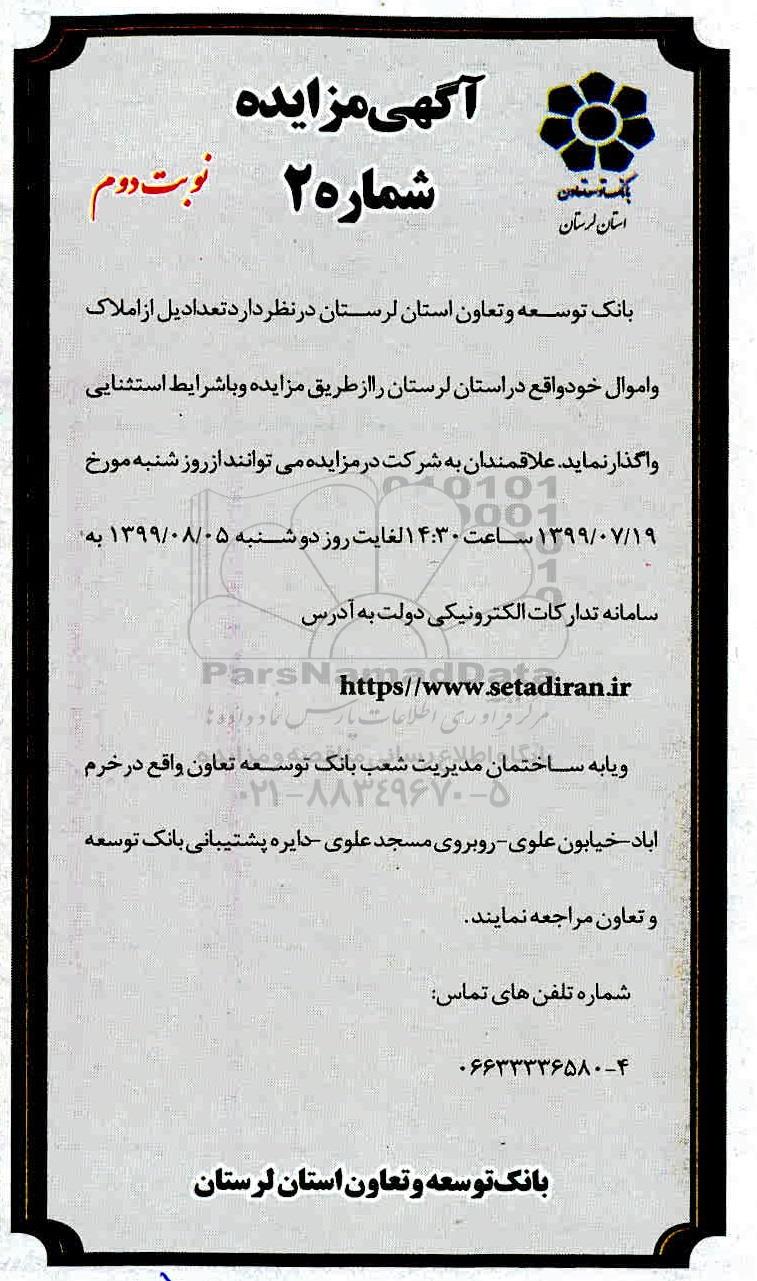 آگهی مزایده
شماره ۲
نوبت دوم
بانک توسعه تعاون
استان لرستان
بانک توسعه و تعاون استان لرستان در نظر دارد تعدادیل از املاک
واموال خود واقع در استان لرستان رااز طریق مزایده وباشرایط استثنایی
واگذار نماید. علاقمندان به شرکت در مزایده می توانند از روز شنبه مورخ
۱۳۹۹/۰۷/۱۹ ساعت ۱۴:۳۰ لغایت روز دو شنبه ۱۳۹۹/۰۸/۰۵ به
سامانه تدارکات الکترونیکی دولت به آدرس
https//www.setadiran.ir
ویابه ساختمان مدیریت شعب بانک توسعه تعاون واقع در خرم
اباد-خیابون علوی-روبروی مسجد علوی -دایره پشتیبانی بانک توسعه
و تعاون مراجعه نمایند.
شماره تلفن های تماس:
۰۶۶۳۳۳۳۶۵۸۰-۴
بانک توسعه و تعاون استان لرستان
ParsNamadData
مرکز فرآوری اطلاعات پارس نماد داده ها
پایگاه اطلاع رسانی مناقصه و مزایده
۰۲۱-۸۸۳۴۹۶۷۰-۵